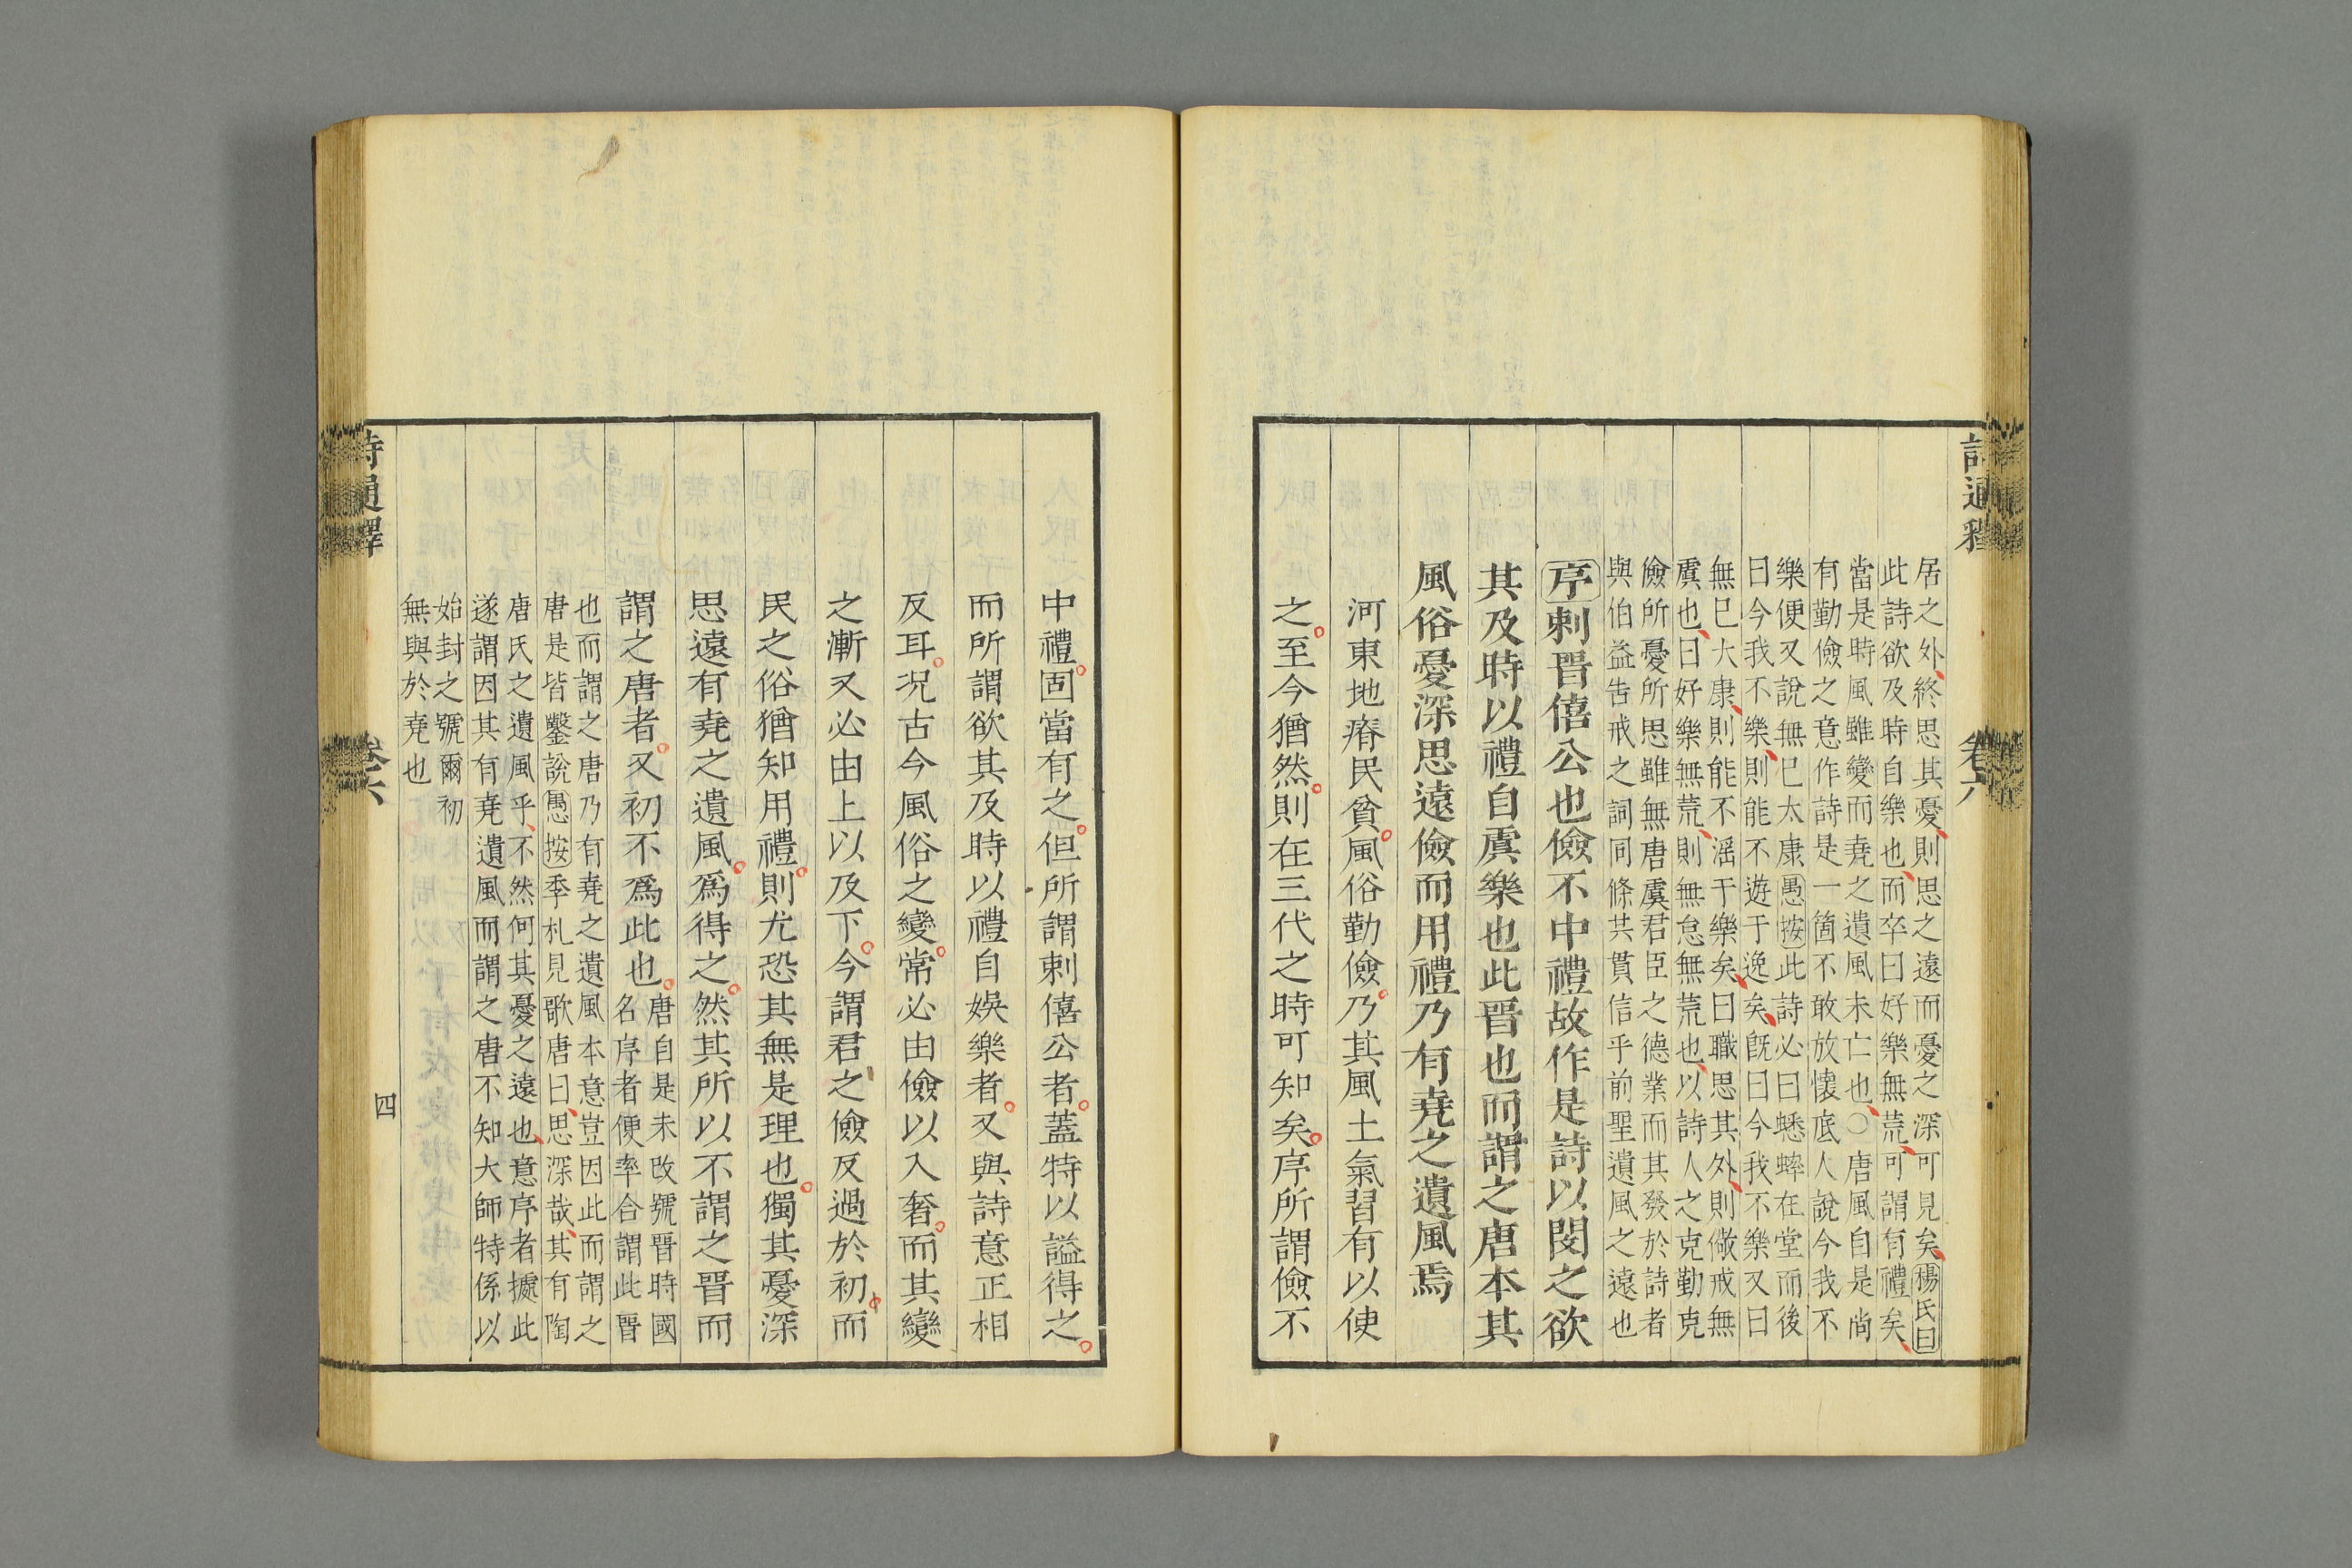 詩通釋
卷六
居之外終思其憂則思之遠而憂之深可見矣楊氏曰
此詩欲及時自樂也而卒曰好樂無荒可謂有禮矣
當是時風雖變而堯之遺風未亡也○唐風自是尚
有勤儉之意作詩是一箇不敢放懷底人說今我不
樂便又說無巳太康愚按此詩必曰蟋蟀在堂而後
曰今我不樂則能不遊于逸矣旣曰今我不樂又曰
無巳大康則能不滛于樂矣曰職思其外則儆戒無
虞也曰好樂無荒則無怠無荒也以詩人之克勤克
儉所憂所思雖無唐虞君臣之德業而其發於詩者
與伯益告戒之詞同條共貫信乎前聖遺風之遠也
序刺晉僖公也儉不中禮故作是詩以閔之欲
其及時以禮自虞樂也此晉也而謂之唐本其
風俗憂深思遠儉而用禮乃有堯之遺風焉
河東地瘠民貧風俗勤儉乃其風土氣習有以使
之至今猶然則在三代之時可知矣序所謂儉不
中禮固當有之但所謂刺僖公者蓋特以謚得之
而所謂欲其及時以禮自娛樂者又與詩意正相
反耳况古今風俗之變常必由儉以入奢而其變
之漸又必由上以及下今謂君之儉反過於初而
民之俗猶知用禮則尤恐其無是理也獨其憂深
思遠有堯之遺風爲得之然其所以不謂之晉而
謂之唐者又初不爲此也唐自是未改號晉時國
名序者便率合謂此晉
也而謂之唐乃有堯之遺風本意豈因此而謂之
唐是皆鑿說愚按季札見歌唐曰思深哉其有陶
唐氏之遺風乎不然何其憂之遠也意序者據此
遂謂因其有堯遺風而謂之唐不知大師特係以
始封之號爾初
無與於堯也
詩通釋
卷六
四